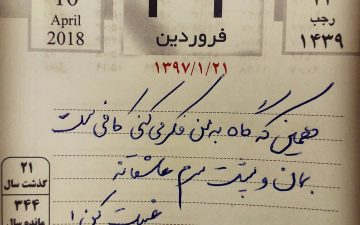 10
April
2018
فروردین
رجب
۱۴۳۹
۱۳۹۷/۱/۲۱
همین که گاه به من فکر می کنی کافی ست
بمان و پشت سرم عاشقانه
غیبت کن!
۲۱
گذشت سال
۳۴۴
مانده سال